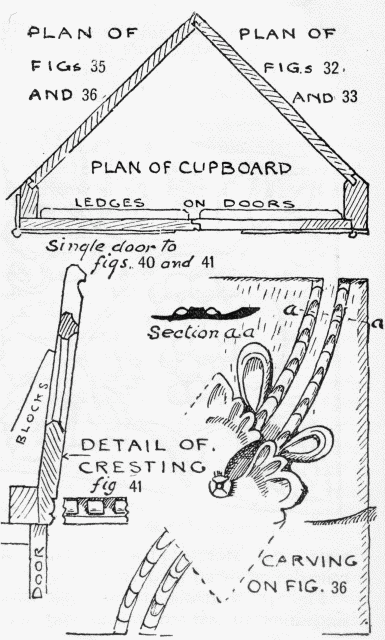 PLAN OF
FIGs 35
AND 36.
PLAN OF
FIG.s 32.
AND 33
PLAN OF CUPBOARD
LEDGES ON DOORS
Single door to
figs. 40 and 41
Section a.a
a
a
BLOCKS
DETAIL OF.
CRESTING
fig 41
DOOR
CARVING
ON FIG. 36